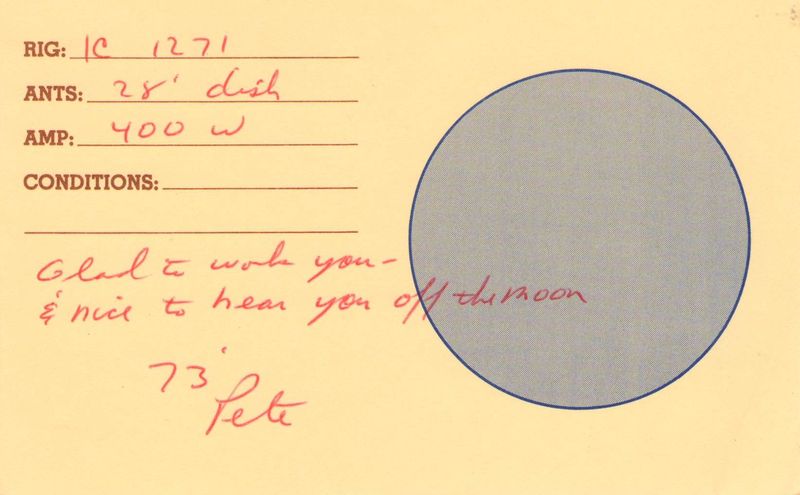 RIG: IC 1271
ANTS: 28' dish
AMP: 400 W
CONDITIONS:
Glad to work you-
& nice to hear you off the moon
73'
Pete